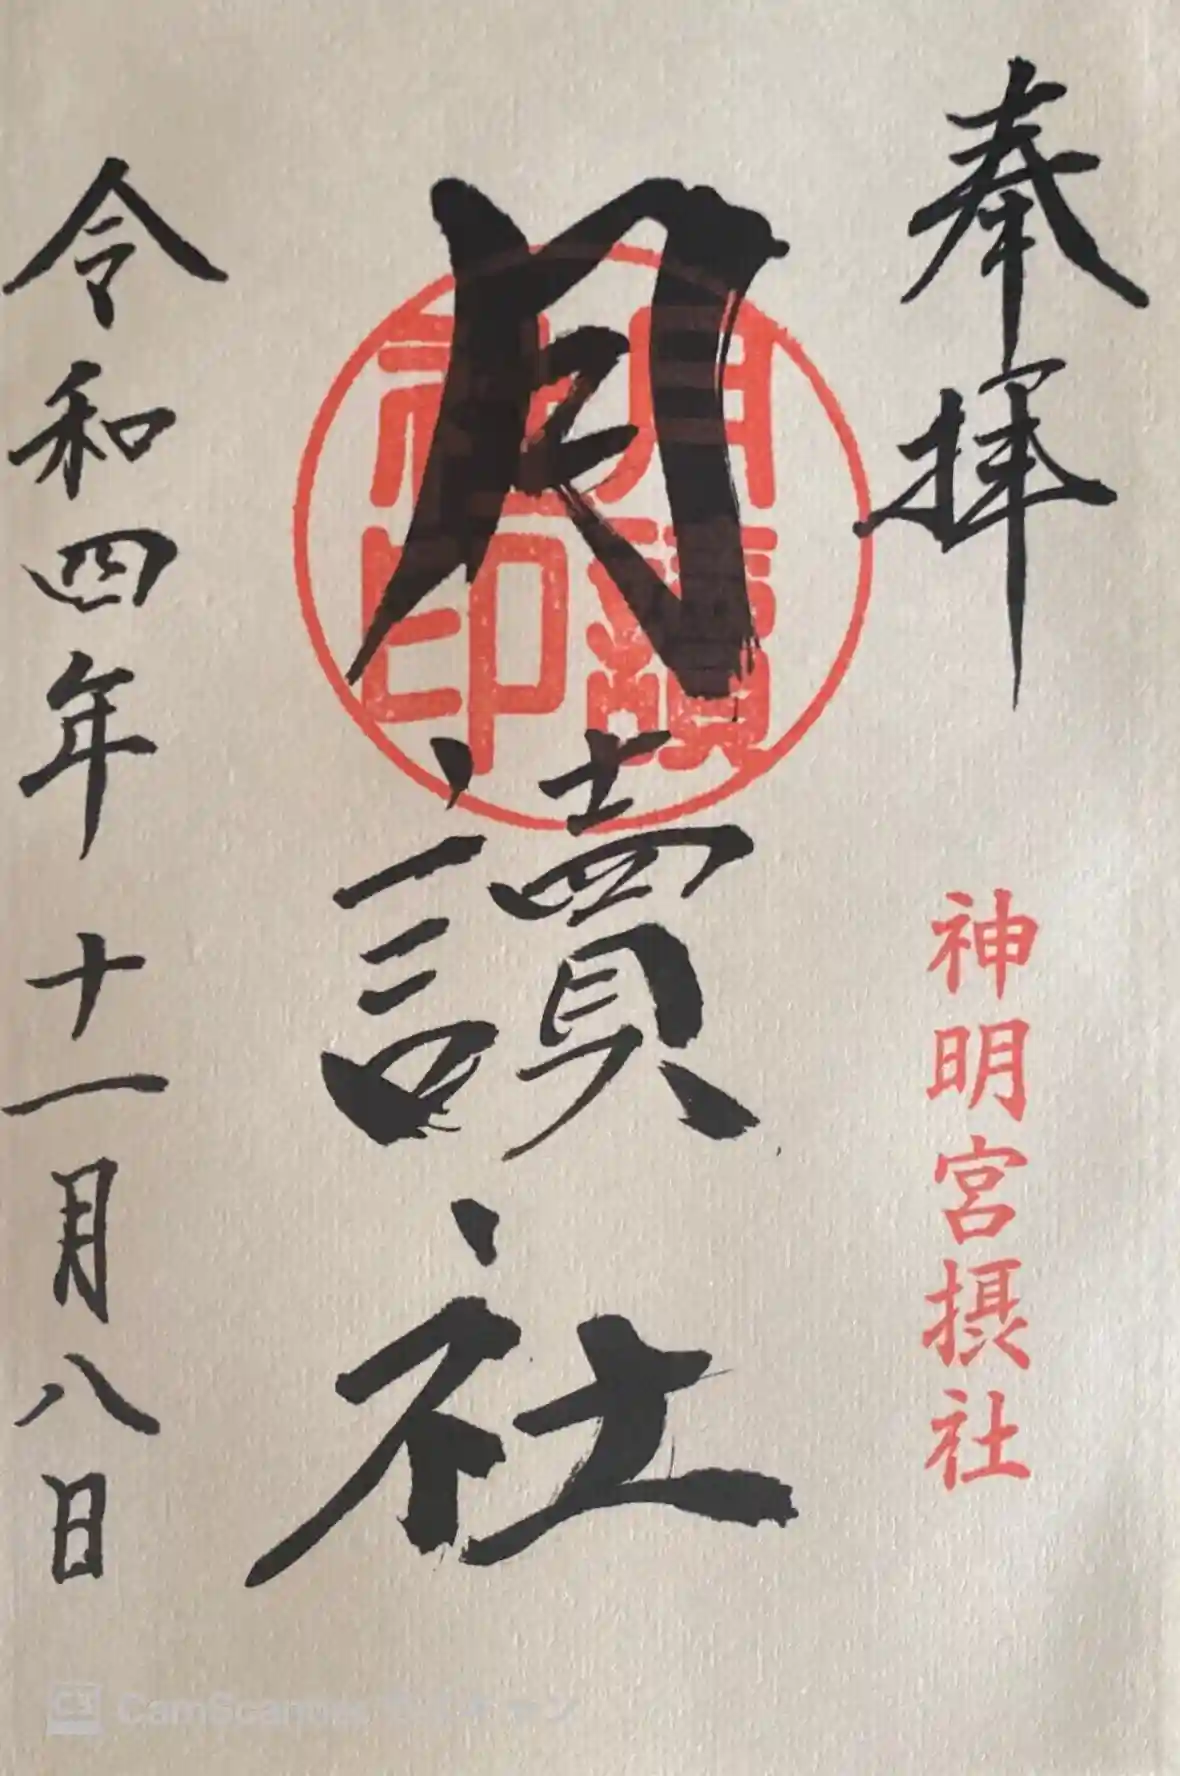 奉拝
神明宮摂社
月讀社
月讀社印
令和四年十一月八日
CamScanner でスキャン